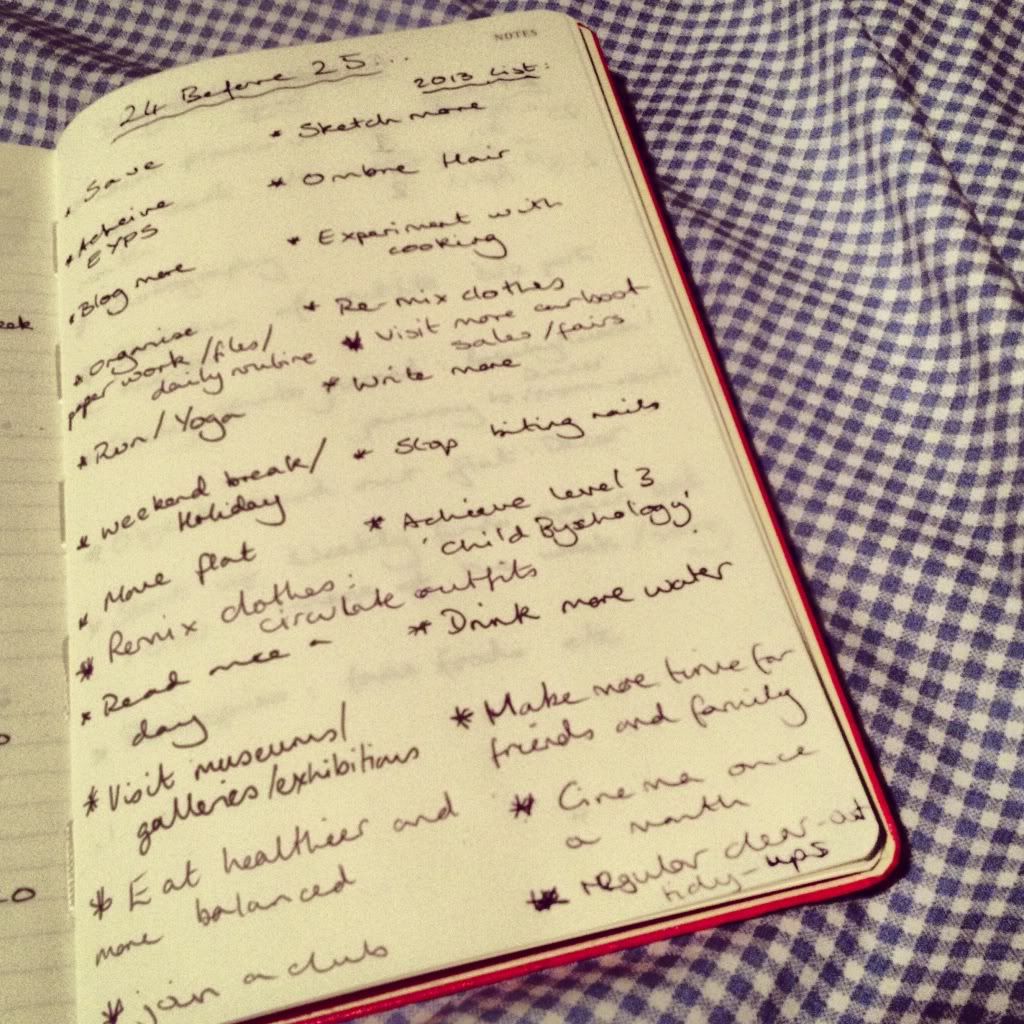 NOTES
24 Before 25...
2013 list:
* Save
* Acheive
EYPS
* Blog more
* Organise
paper work/files/
daily routine
* Run/Yoga
* Weekend break/
Holiday
* Move flat
* Remix clothes:
circulate outfits
* Read
day
* Visit museums/
galleries/exhibitions
* Eat healthier and
more balanced
* join a club
* Sketch more
* Ombre Hair
* Experiment with
cooking
* Re-mix clothes
* Visit more carboot
sales/fairs
* Write more
* Stop biting nails
* Achieve level 3
'Child Pyschology'
* Drink more water
* Make more time for
friends and family
* Cinema once
a month
* regular clear-out
tidy-ups